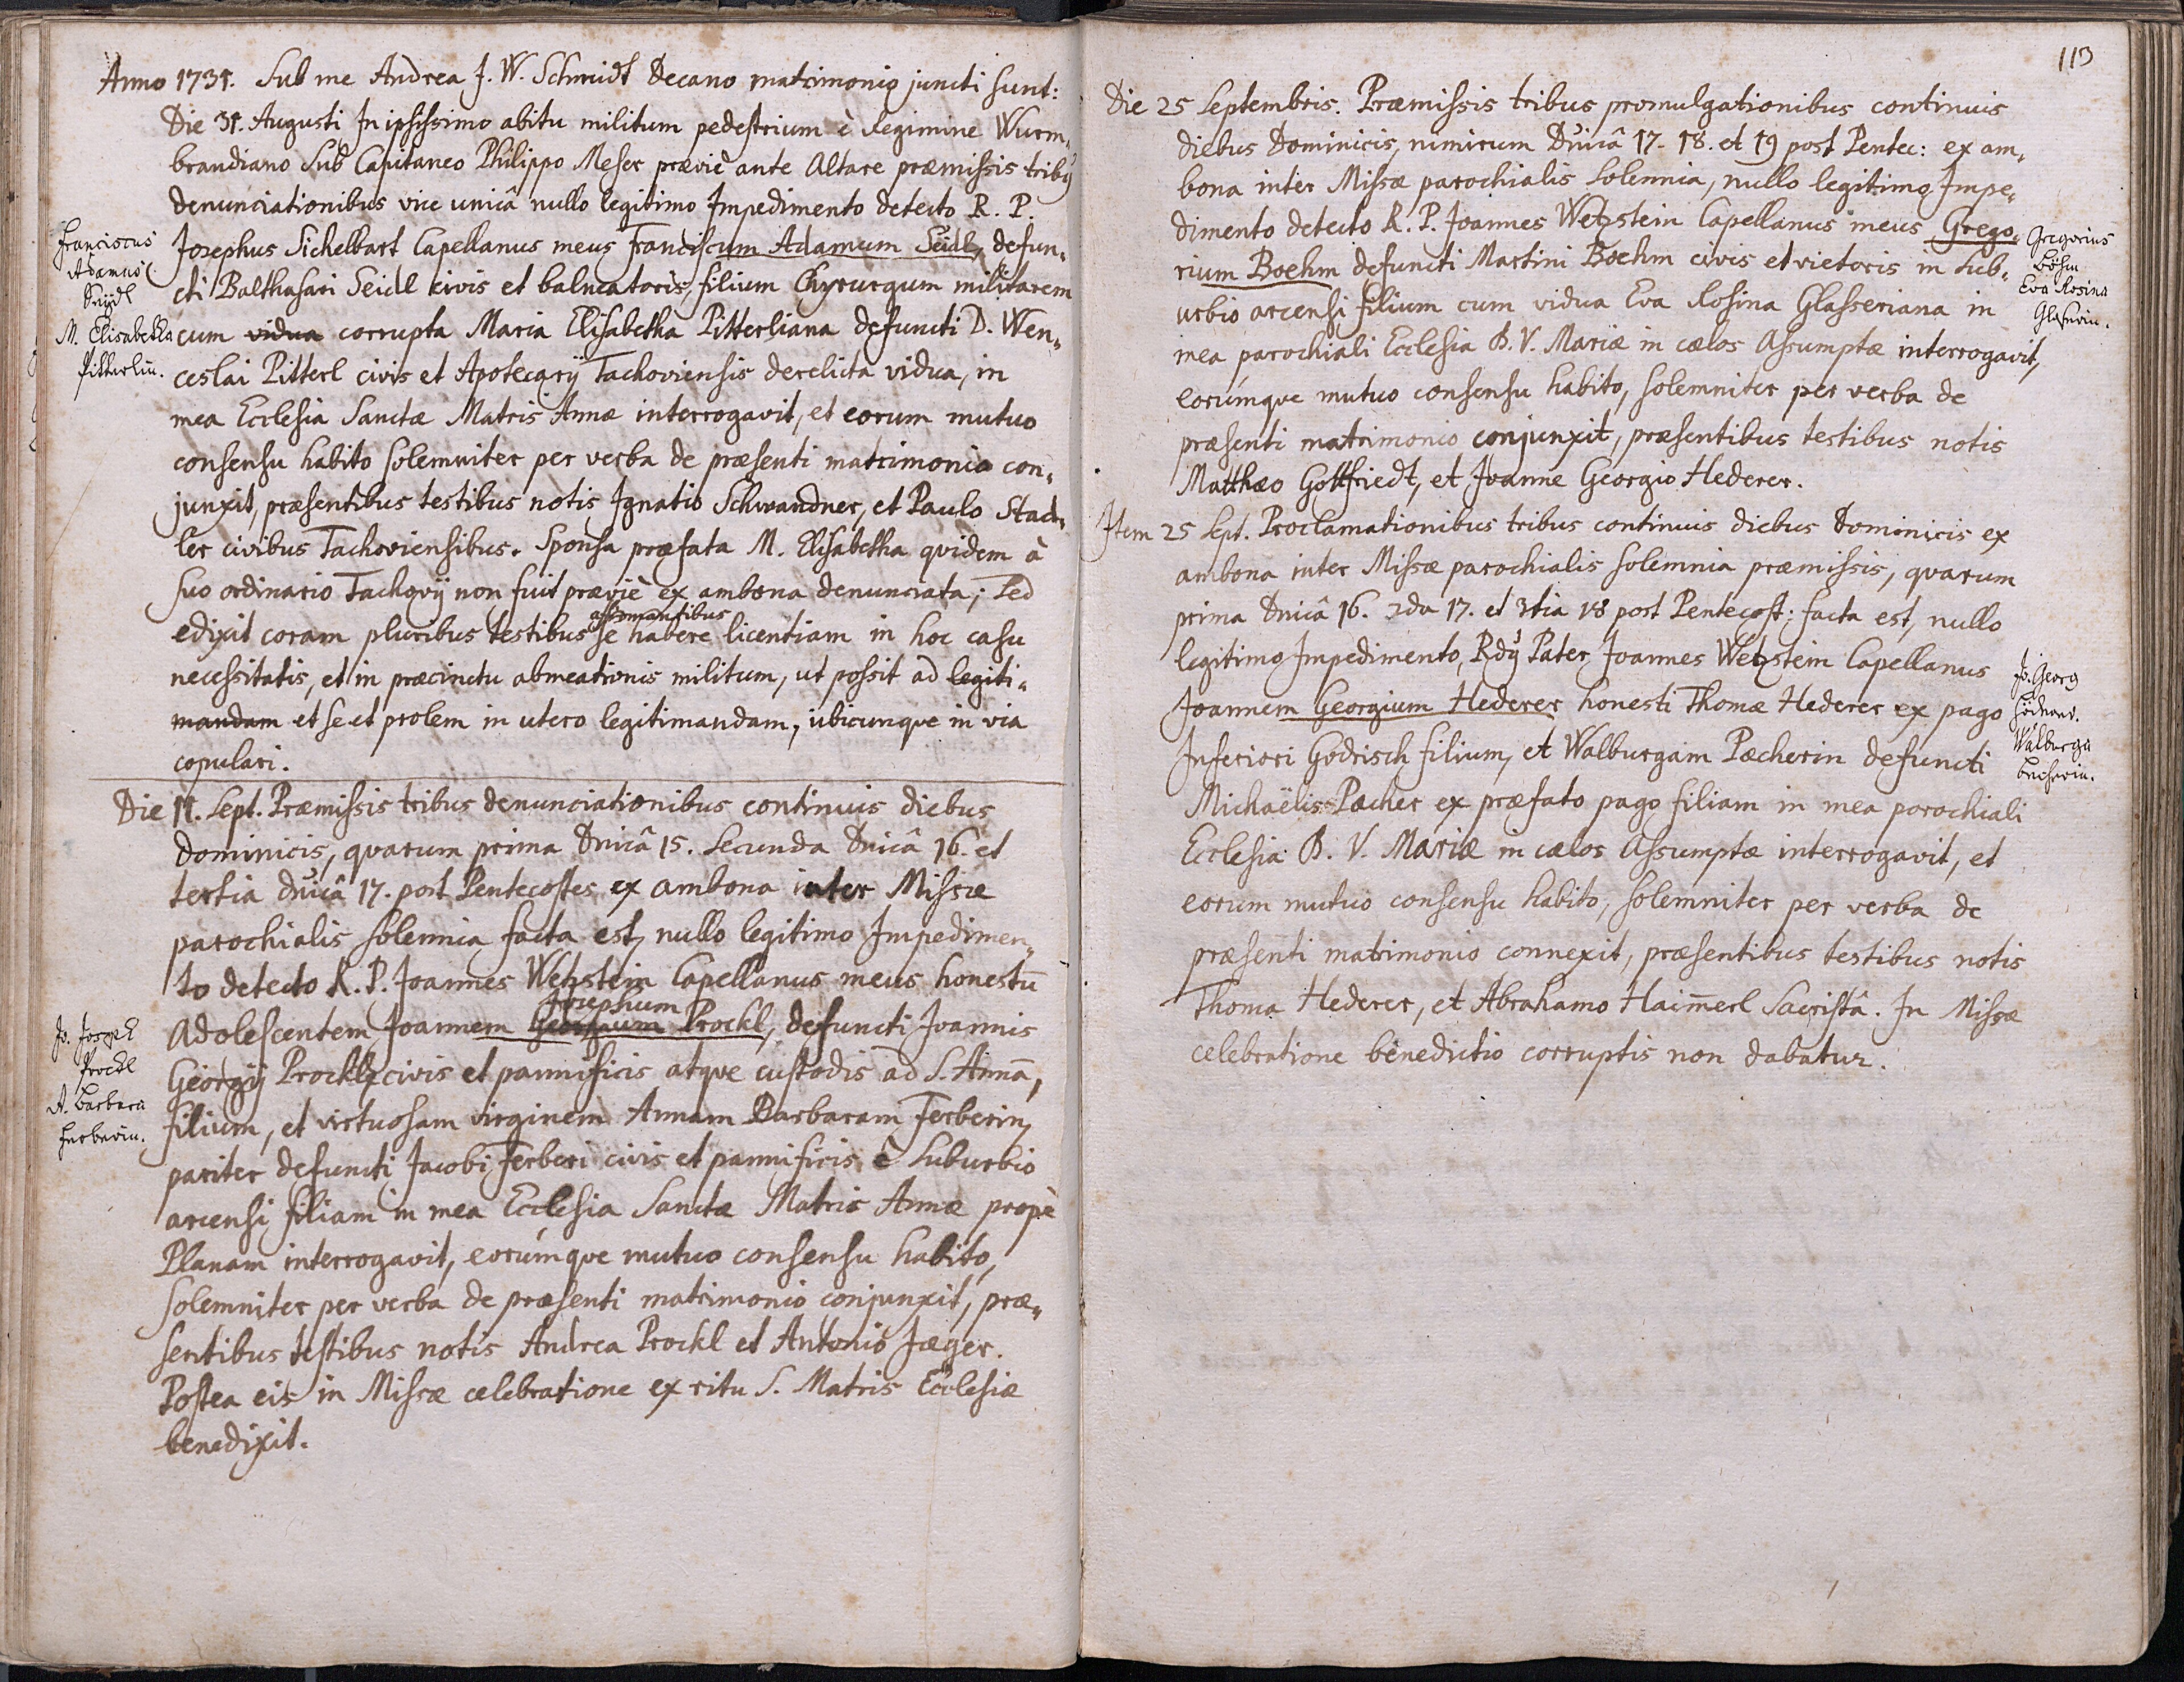 Anno 1731. Sub me Andrea J. W. Schmidt Decano matrimonio juncti sunt:
Die 31. Augusti In ipsissimo abitu militum pedestrium è Regimine Wurm„
brandiano sub Capitaneo Philippo Meser prævie ante Altare præmissis tribȝ
denunciationibus vice unicâ nullo legitimo Impedimento detecto R. P.
Josephus Sichelbart Capellanus meus Franciscum Adamum Seidl, defun„
cti Balthasari Seidl civis et balneatoris, filium Chyrurgum militarem
cum vidua corrupta Maria Elisabetha Pitterliana defuncti D. Wen„
ceslai Pitterl civis et Apotecarij Tachoviensis derelicta vidua, in
mea Ecclesia Sanctæ Matris Annæ interrogavit, et eorum mutuo
consensu habito solemniter per verba de præsenti matrimonio con„
junxit, præsentibus testibus notis Ignatio Schwandner, et Paulo Stad„
ler civibus Tachoviensibus. Sponsa præfata M. Elisabetha quidem à
suo ordinario Tachovij non fuit præviè ex ambona denunciata; sed
edixit coram pluribus testibus affirmantibus se habere licentiam in hoc casu
necessitatis, et in præcinctu abmeationis militum, ut possit ad legiti„
mandam et se et prolem in utero legitimandam, ubicunque in via
copulari.
Franciscus
Adamus
Seydl
M. Elisabetha
Pitterlin.
Die 11. Sept. Præmissis tribus denunciationibus continuis diebus
Dominicis, quarum prima Dnicâ 15. Secunda Dnicâ 16. et
tertia dnicâ 17. post Pentecostes ex ambona inter Missæ
parochialis solemnia facta est, nullo legitimo Impedimen„
to detecto R. P. Joannes Wetzstein Capellanus meus honestū
Adolescentem Joannem Georgium Josephum Prockl, defuncti Joannis
Georgij Prockl civis et pannificis atque custodis ad S. Annā,
filium, et virtuosam virginem Annam Barbaram Ferberin,
pariter defuncti Jacobi Ferberi civis et pannificis è Suburbio
arcensi filiam in mea Ecclesia Sanctæ Matris Annæ propè
Planam interrogavit, eorúmque mutuo consensu habito,
solemniter per verba de præsenti matrimonio conjunxit, præ„
sentibus testibus notis Andrea Prockl et Antonio Jæger.
Postea eis in Missæ celebratione ex ritu S. Matris Ecclesiæ
benedixit.
Jo. Joseph
Prockl
A. Barbara
Ferberin.
113
Die 25 Septembris. Præmissis tribus promulgationibus continuis
diebus Dominicis, nimirum Dnicâ 17. 18. et 19 post Pentec: ex am„
bona inter Missæ parochialis Solemnia, nullo legitimo Impe„
dimento detecto R. P. Joannes Wetzstein Capellanus meus Grego„
rium Boehm defuncti Martini Boehm civis et vietoris in Sub„
urbio arcensi filium cum vidua Eva Rosina Glasseriana in
mea parochiali Ecclesia B. V. Mariæ in cælos Assumptæ interrogavit,
eorúmque mutuo consensu habito, solemniter per verba de
præsenti matrimonio conjunxit, præsentibus testibus notis
Matthæo Gottfriedt, et Joanne Georgio Hederer.
Gregorius
Böhm
Eva Rosina
Glaserin.
Item 25 Sept. Proclamationibus tribus continuis diebus Dominicis ex
ambona inter Missæ parochialis solemnia præmissis, quarum
prima Dnicâ 16. 2da 17. et 3tia 18 post Pentecost: facta est, nullo
legitimo Impedimento, Rdȝ Pater Joannes Wetzstein Capellanus
Joannem Georgium Hederer honesti Thomæ Hederer ex pago
Inferiori Godrisch filium, et Walburgam Pæcherin defuncti
Michaëlis Pæcher ex præfato pago filiam in mea parochiali
Ecclesia B. V. Mariæ in cælos Assumptæ interrogavit, et
eorum mutuo consensu habito, solemniter per verba de
præsenti matrimonio connexit, præsentibus testibus notis
Thoma Hederer, et Abrahamo Haim̄erl Sacristâ. In Missæ
celebratione benedictio corruptis non dabatur.
Jo. Georg
Walburga